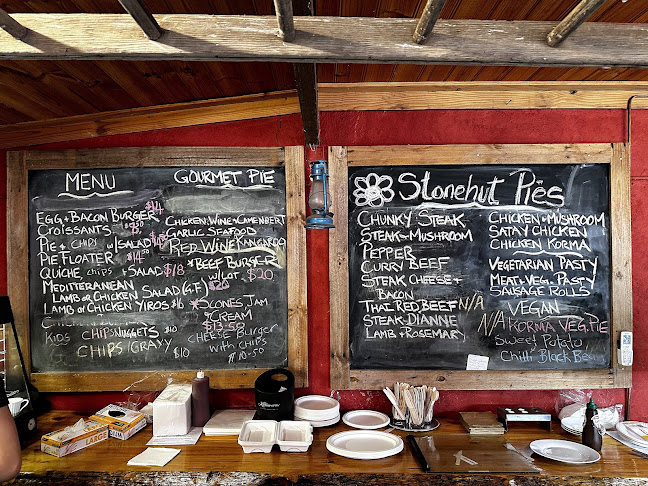 MENU
EGG + BACON BURGER $14
CROISSANTS
PIE + CHIPS w/SALAD
PIE FLOATER
QUICHE, chips + SALAD $18
MEDITERRANEAN
LAMB or CHICKEN SALAD (G.F)
LAMB or CHICKEN YIROS
KIDS CHIPS NUGGETS $10
CHIPS/GRAVY $10
GOURMET PIE
CHICKEN WINE + CAMENBERT
GARLIC SEAFOOD
RED WINE KANGAROO
*BEEF BURGER
w/LOT $20
*SCONES JAM
+ CREAM
CHEESE BURGER
WITH CHIPS
$10.50
Stonehut Pies
CHUNKY STEAK
STEAK + MUSHROOM
PEPPER
CURRY BEEF
STEAK CHEESE +
BACON
THAI RED BEEF N/A
STEAK DIANNE
LAMB + ROSEMARY
CHICKEN + MUSHROOM
SATAY CHICKEN
CHICKEN KORMA
VEGETARIAN PASTY
MEAT + VEG. PASTY
SAUSAGE ROLLS
VEGAN
N/A KORMA VEG. PIE
Sweet Potato
Chilli Black Bean
LARGE